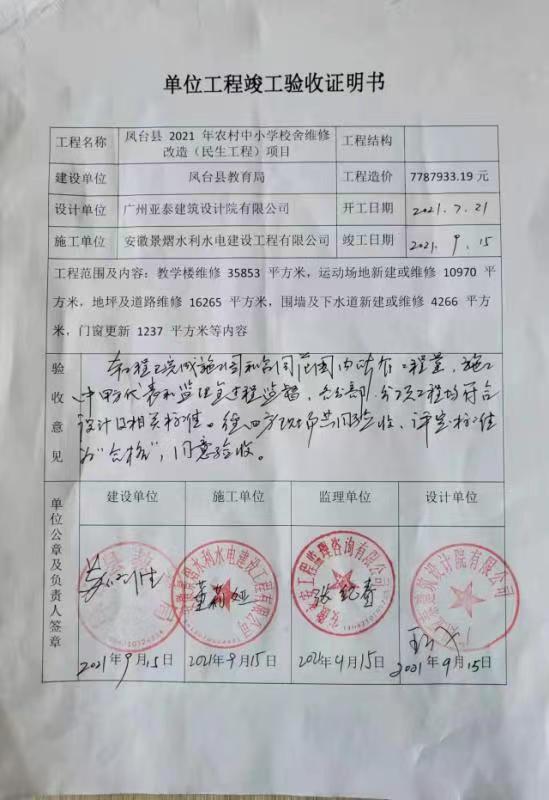 单位工程竣工验收证明书
工程名称
凤台县 2021 年农村中小学校舍维修
改造（民生工程）项目
工程结构
建设单位
凤台县教育局
工程造价
7787933.19 元
设计单位
广州亚泰建筑设计院有限公司
开工日期
2021.7.21
施工单位
安徽景熠水利水电建设工程有限公司
竣工日期
2021.9.15
工程范围及内容：教学楼维修 35853 平方米，运动场地新建或维修 10970 平
方米，地坪及道路维修 16265 平方米，围墙及下水道新建或维修 4266 平方
米，门窗更新 1237 平方米等内容
验收意见
本工程已完成施工图和合同范围内所有工程量，施工
中甲方代表和监理全过程监督，各分部、分项工程均符合
设计及相关标准。经四方现场共同验收，评定标准
为“合格”，同意验收。
单位公章及负责人签章
建设单位
施工单位
监理单位
设计单位
水利水电建设工程有限公司
工程监理咨询有限公司
建筑设计院有限公司
董莉娅
2021年9月15日
2021年9月15日
2021年9月15日
2021年9月15日